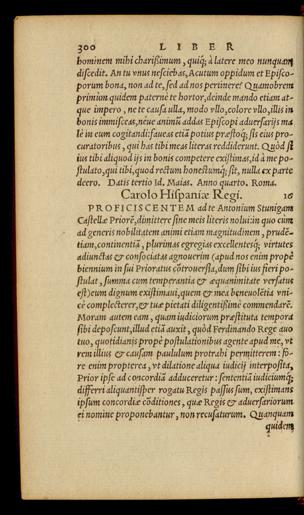 300 LIBER
hominem mihi charißimum, quiq́; à latere meo nunquam
discedit. An tu vnus nesciebas, Acutum oppidum et Episco-
porum bona, non ad te, sed ad nos pertinere? Quamobrem
primùm quidem paternè te hortor, deinde mando etiam at-
que impero, ne te causa ulla, modo vllo, colore vllo, illis in
bonis immisceas, néue animũ addas Episcopi aduersarijs ma-
lè in eum cogitandi: faueas etiã potius præstoq́; sis eius pro-
curatoribus, qui has tibi meas literas reddiderunt. Quòd si
ius tibi aliquod ijs in bonis competere existimas, id à me po-
stulato, qui tibi, quod rectum honestumq́; sit, nulla ex parte
deero. Datis tertio Id. Maias. Anno quarto. Roma.
Carolo Hispaniæ Regi. 16
PROFICISCENTEM ad te Antonium Stunigam
Castellæ Priorẽ, dimittere sine meis literis nolui: in quo cum
ad generis nobilitatem animi etiam magnitudinem, prudẽ-
tiam, continentiã, plurimas egregias excellentesq́; virtutes
adiunctas & consociatas agnouerim (apud nos enim propè
biennium in sui Prioratus cõtrouersia, dum sibi ius fieri po-
stulat, summa cum temperantia & æquanimitate versatus
est) eum dignum existimaui, quem & mea beneuolẽtia vni-
cè complecterer, & tuæ pietati diligentißimè commendarẽ.
Moram autem eam, quam iudiciorum præstituta tempora
sibi deposcunt, illud etiã auxit, quòd Ferdinando Rege auo
tuo, quotidianis propè postulationibus agente apud me, vt
rem illius & causam paululum protrahi permitterem: fo-
re enim propterea, vt dilatione aliqua iudicij interposita,
Prior ipse ad concordiã adduceretur: sententiã iudiciumq́;
differri aliquantisper rogatu Regis passus sum, existimans
ipsum concordiæ cõditiones, quæ Regis & aduersariorum
ei nomine proponebantur, non recusaturum. Quanquam
quidem